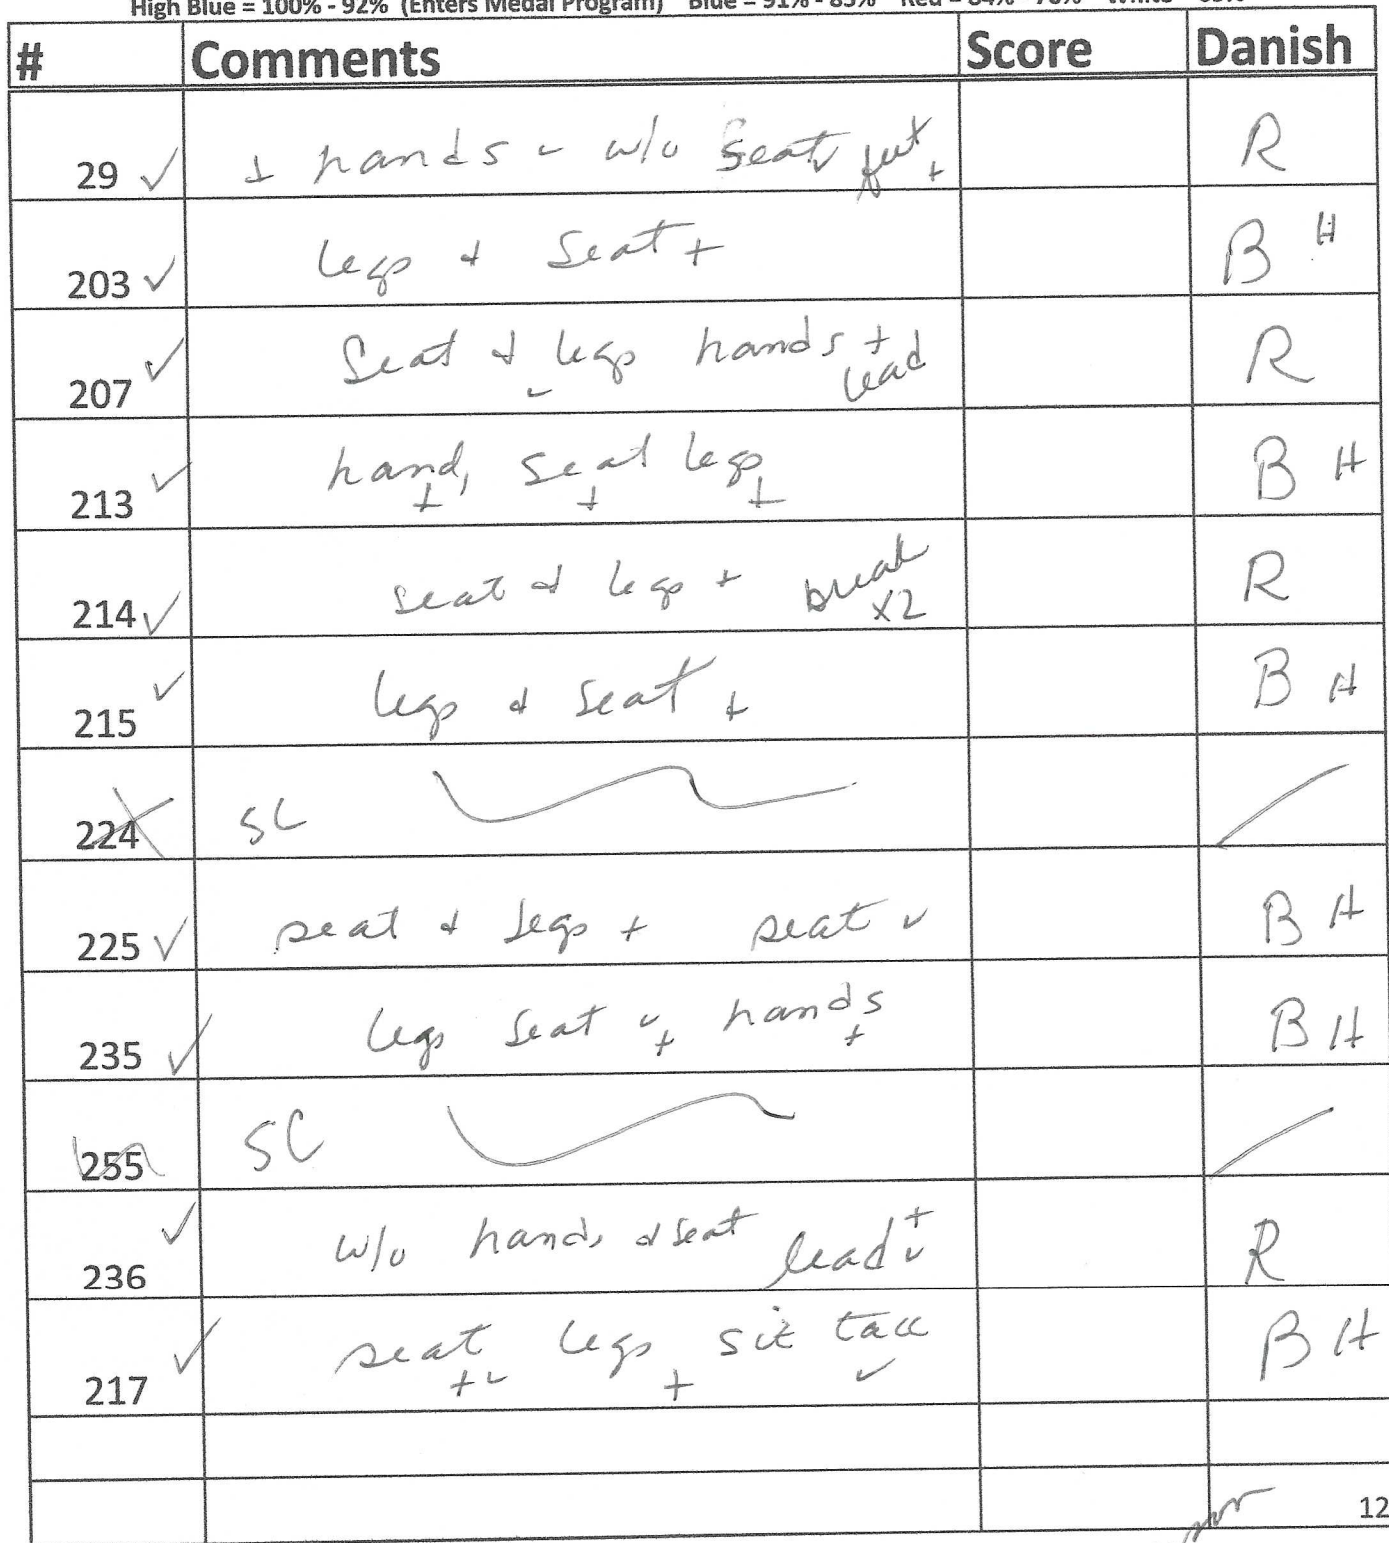 High Blue = 100% - 92% (Enters Medal Program) Blue = 91% - 85% Red = 84%
# Comments Score Danish
29 ✓ + hands - w/o Seat feet + R
203 ✓ legs + Seat + B H
207 ✓ Seat + legs - hands + lead R
213 ✓ hand, + seat + legs + B H
214 ✓ seat + legs + break x2 R
215 ✓ legs + seat + B H
224 SC
225 ✓ seat + legs + seat ✓ B H
235 ✓ legs seat ✓ + hands + B H
255 SC
236 ✓ w/o hands + seat lead + ✓ R
217 ✓ seat + ✓ legs + sit tall ✓ B H
12